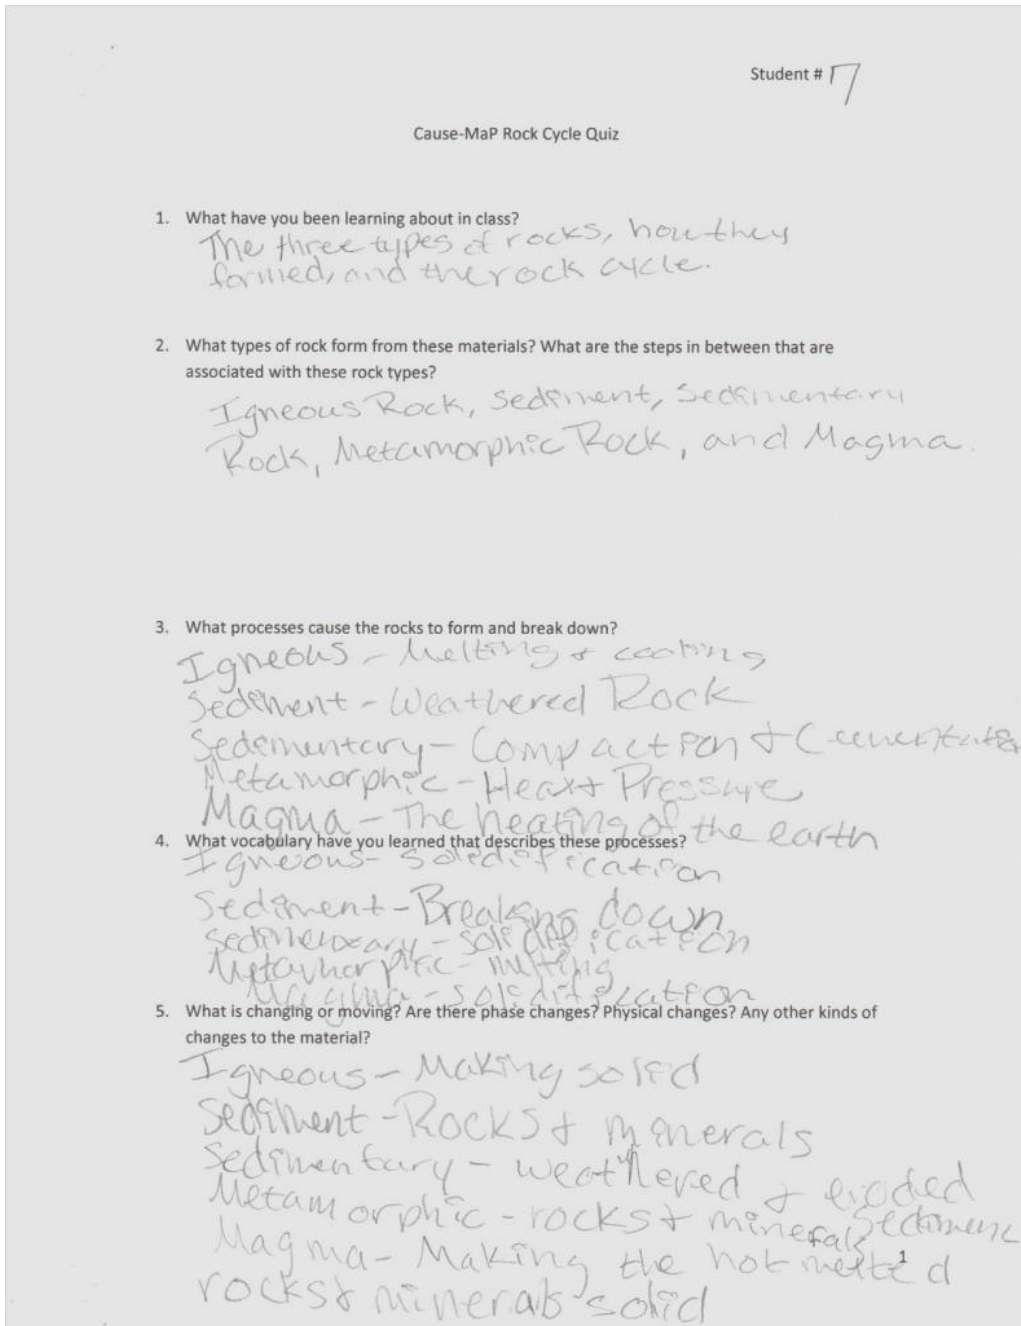 Student # 17
Cause-MaP Rock Cycle Quiz
1. What have you been learning about in class?
The three types of rocks, how they
formed, and the rock cycle.
2. What types of rock form from these materials? What are the steps in between that are
associated with these rock types?
Igneous Rock, Sediment, Sedimentary
Rock, Metamorphic Rock, and Magma.
3. What processes cause the rocks to form and break down?
Igneous - Melting & cooling
Sediment - Weathered Rock
Sedementary - Compaction &
Metamorphic - Heat & Pressure
Magma - The heating of the earth
4. What vocabulary have you learned that describes these processes?
Igneous - soledification
Sediment - Breaking down
Sedimentary - solidification
Metamorphic - melting
Magma - soledification
5. What is changing or moving? Are there phase changes? Physical changes? Any other kinds of
changes to the material?
Igneous - Making solid
Sediment - Rocks & minerals
Sedimentary - weathered & eroded
sediment
Metamorphic - rocks & minerals
Magma - Making the hot melted
rocks & minerals solid
1